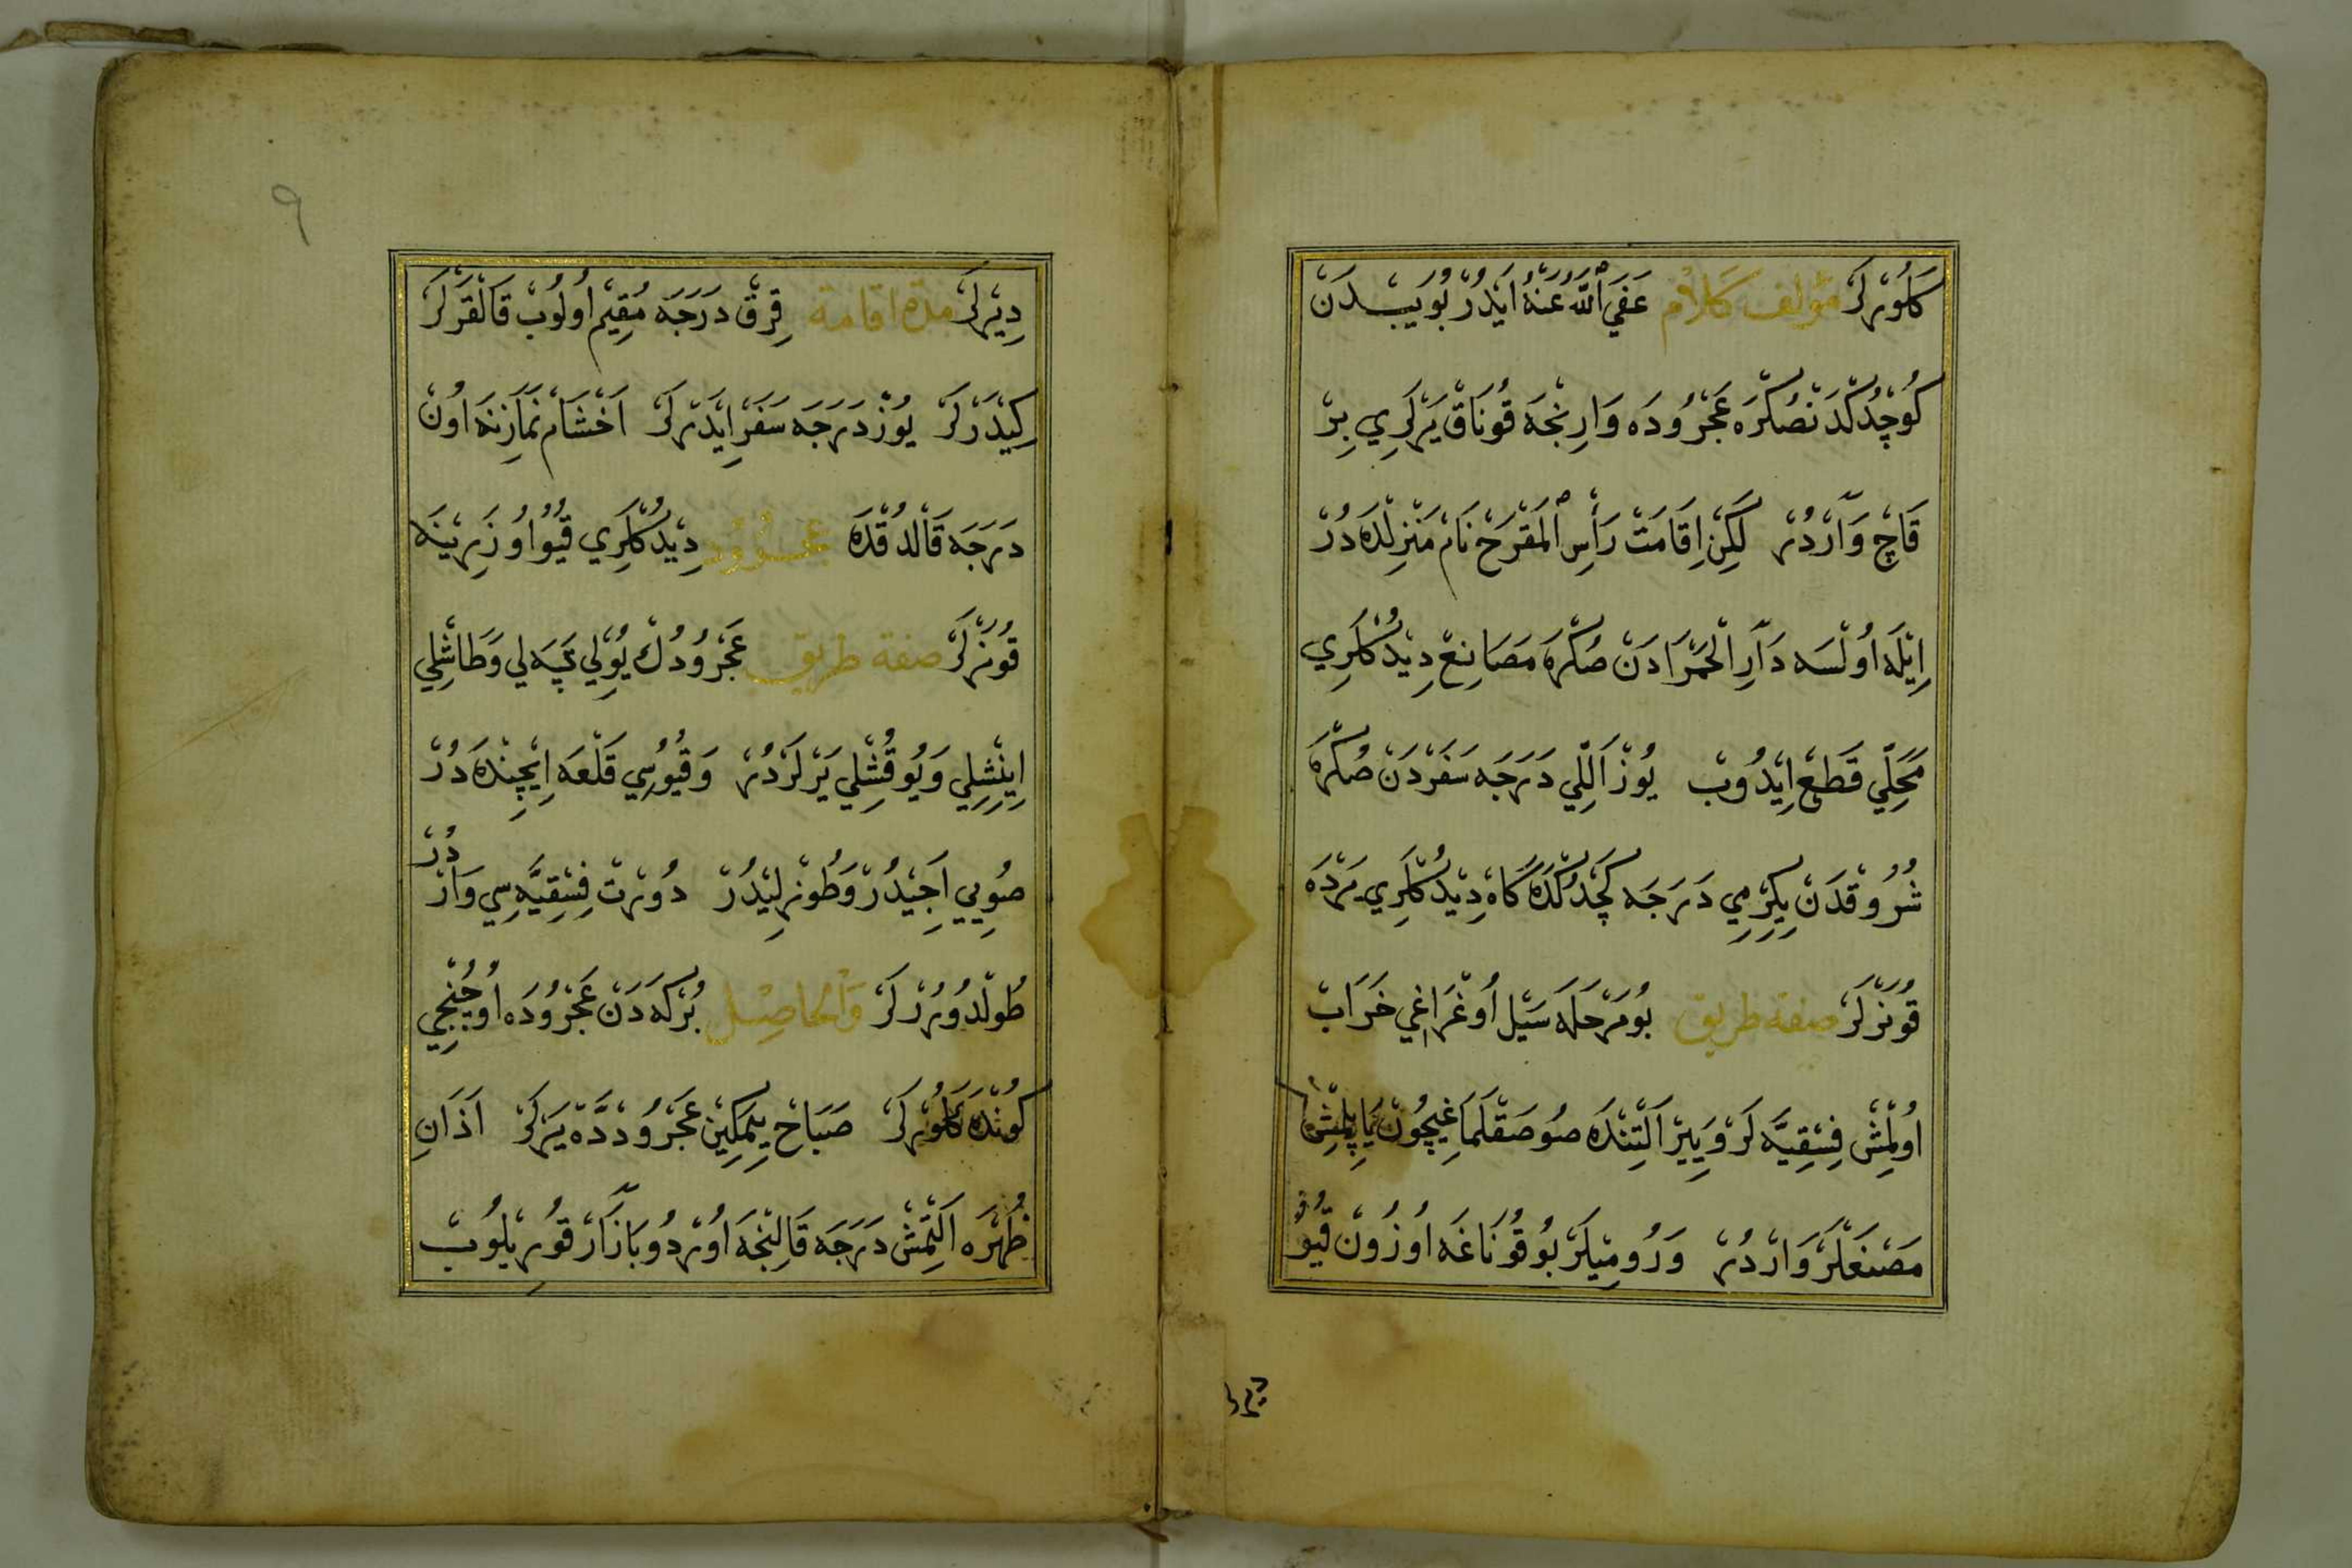 كَلُورْلَرْ مؤلف كَلَامْ عَفَي اللّٰهُ عَنْهُ اَيْدُرْ بُويَبْدَنْ
كُوچْدُكْدَنْصُكْرَه عَجْرُودَه وَارِنْجَه قُونَاقْ يَرْلَرِي بِرْ
قَاچْ وَارْدُرْ لَكِنْ اِقَامَتْ رَأْسِ الْمَقْرَحْ نَامْ مَنْزِلْدَه دُرْ
اِيْلَه اُولْسَه دَارِ الْحَمْرَادَنْ صُكْرَه مَصَانِعْ دِيْدُكْلَرِي
مَحَلِّي قَطْعْ اِيْدُوبْ يُوزْ اَللِّي دَرَجَه سَفَرْدَنْ صُكْرَه
شُرُوقْدَنْ يِكِرْمِي دَرَجَه كَچْدُكْدَه كَاه دِيْدُكْلَرِي يَرْدَه
قُونَرْلَرْ صفة طريق بُو مَرْحَلَه سَيْل اُوغْرَاغِي خَرَابْ
اُولْمِشْ فِسْقِيَّه لَرْ وَيِيرْ اَلْتِنْدَه صُو صَقْلَمَاغِيچُونْ يَاپِلْمِشْ
مَصْنَعْلَرْ وَارْدُرْ وَرُومِيلَرْ بُو قُونَاغَه اُوزُونْ قُيُو
دِيرْلَرْ مدة اقامة قِرْقْ دَرَجَه مُقِيمْ اُولُوبْ قَالْقَرْلَرْ
كِيْدَرْلَرْ يُوزْ دَرَجَه سَفَرْ اِيْدَرْلَرْ اَخْشَامْ نَمَازِنَه اُونْ
دَرَجَه قَالْدُقْدَه عجرود دِيْدُكْلَرِي قُيُو اُوزَرِيْنَه
قُونَرْلَرْ صفة طريق عَجْرُودُكْ يُولِي تَپَه لِي وَطَاشْلِي
اِينِشْلِي وَيُوقُشْلِي يَرْلَرْدُرْ وَقُيُوسِي قَلْعَه اِيچِنْدَه دُرْ
صُويِي اَجِيْدُرْ وَطُوزْلِيْدُرْ دُورْتْ فِسْقِيَّه سِي وَارْ دُرْ
طُولْدُورُرْلَرْ وَالْحَاصِلْ بُرْكَه دَنْ عَجْرُودَه اُوچُنْجِي
كُونْدَه كَلُورْلَرْ صَبَاحْ يِمَكِينْ عَجْرُودْدَه يَرْلَرْ اَذَانِ
ظُهْرَه اَلْتْمِشْ دَرَجَه قَالِنْجَه اُورْدُو بَازَارْ قُورِيلُوبْ